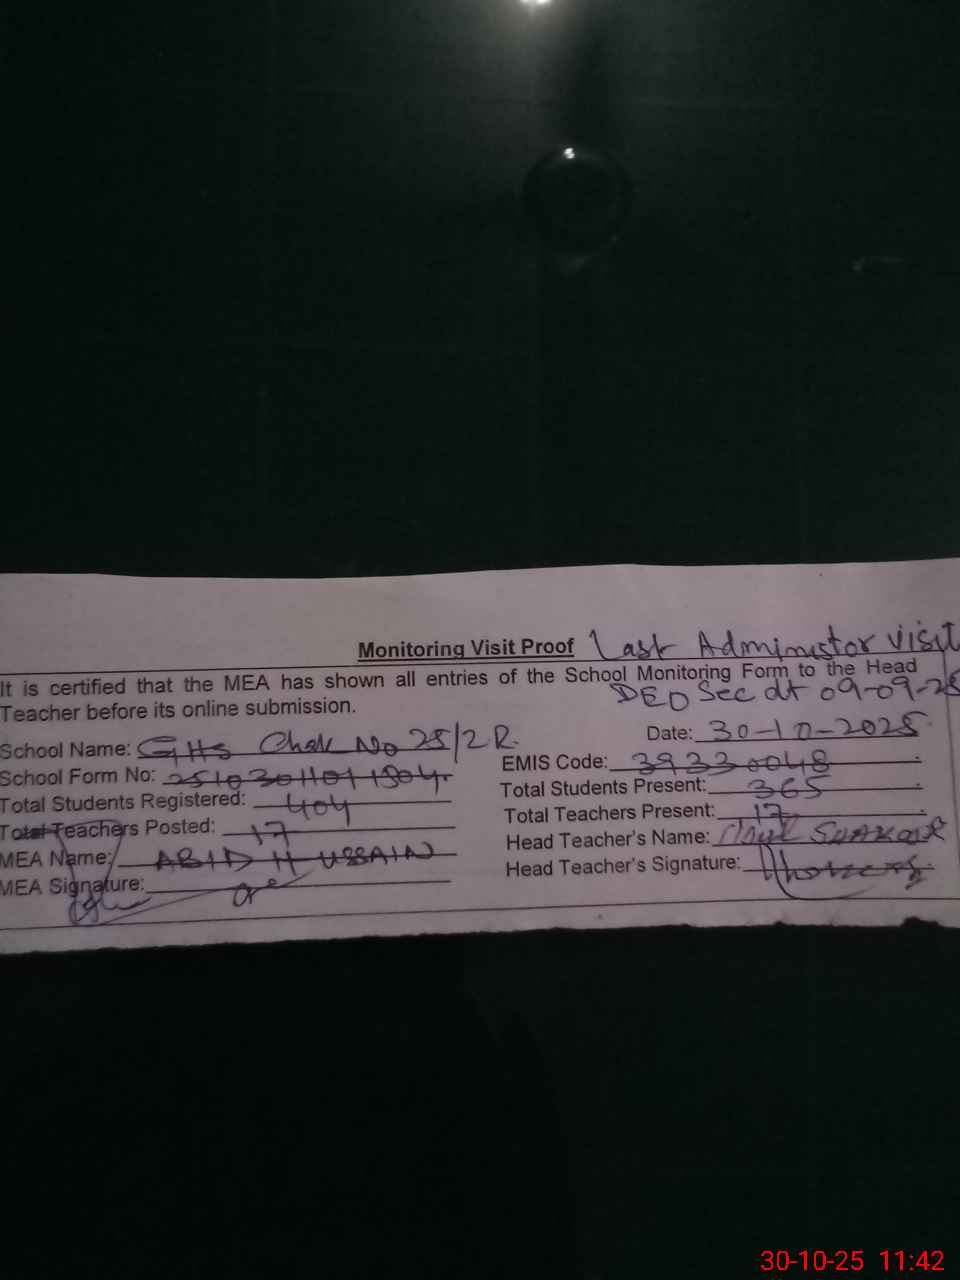 Monitoring Visit Proof Last Administor visit
It is certified that the MEA has shown all entries of the School Monitoring Form to the Head
DEO Sec dt 09-09-25
Teacher before its online submission.
Date: 30-10-2025
School Name: GHS Chak No 25/2R.
EMIS Code: 39330048
School Form No:
Total Students Present: 365
Total Students Registered: 404
Total Teachers Present: 17
Total Teachers Posted: 17
Head Teacher's Name: Shakoor
MEA Name: ABID HUSSAIN
Head Teacher's Signature:
MEA Signature:
30-10-25 11:42